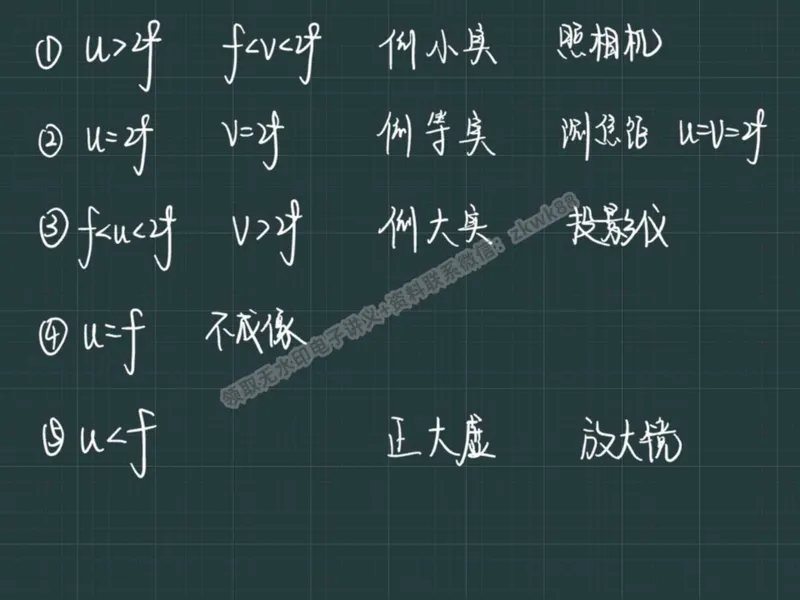 ① u>2f f<v<2f 倒小实 照相机
② u=2f v=2f 倒等实 测焦距 u=v=2f
③ f<u<2f v>2f 倒大实 投影仪
④ u=f 不成像
⑤ u<f 正大虚 放大镜
领取无水印电子讲义+资料联系微信：zkwk88